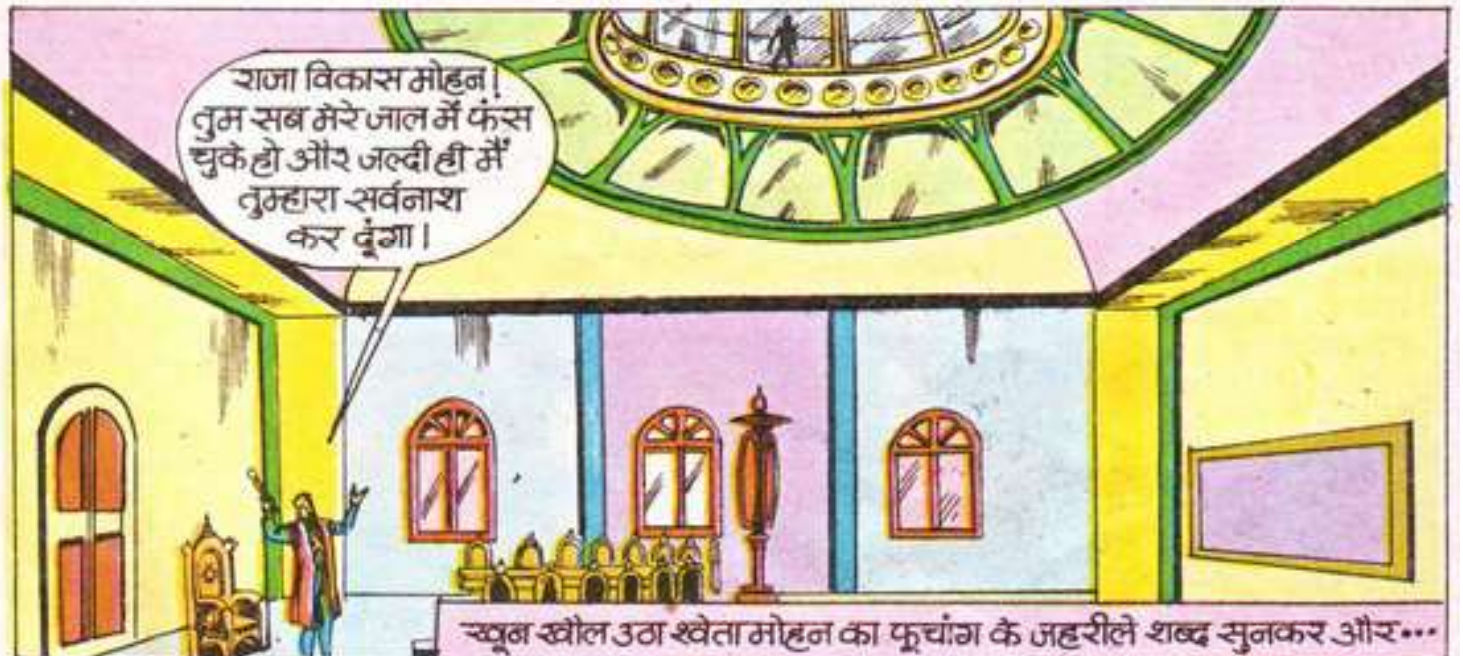 राजा विकास मोहन!
तुम सब मेरे जाल में फंस
चुके हो और जल्दी ही मैं
तुम्हारा सर्वनाश
कर दूंगा।
खून खौल उठा श्वेता मोहन का फूचांग के जहरीले शब्द सुनकर और...